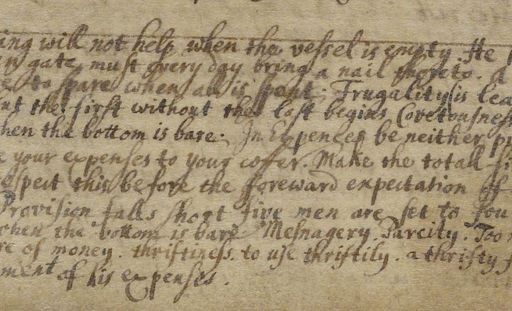 ing will not help when the vessel is empty. He
gate must every day bring a nail thereto. A
to spare when all is spent. Frugality is lea
the first without the last begins Covetousness
hen the bottom is bare. In Expences be neither
your expenses to your coffer. Make the totall
espect this before the foreward expectation of
Provision falls short five men are set to fou
when the bottom is bare Mesnagery. Parcity. Too
re of money. thriftiness. to use thriftily. a thrifty
ment of his expenses.